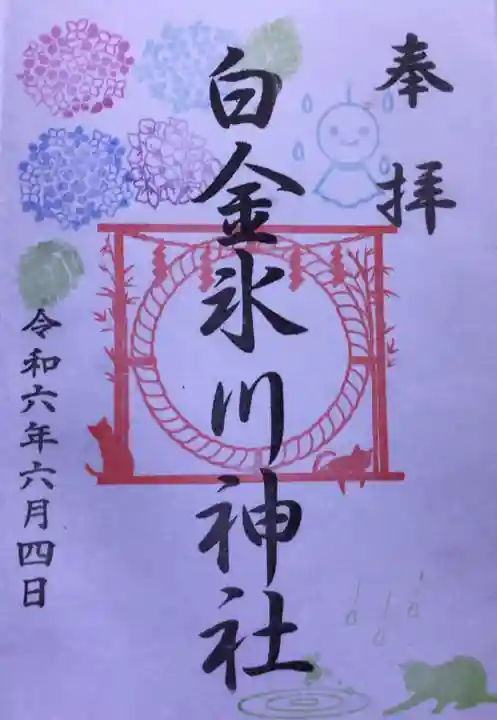 奉拝
白金氷川神社
令和六年六月四日